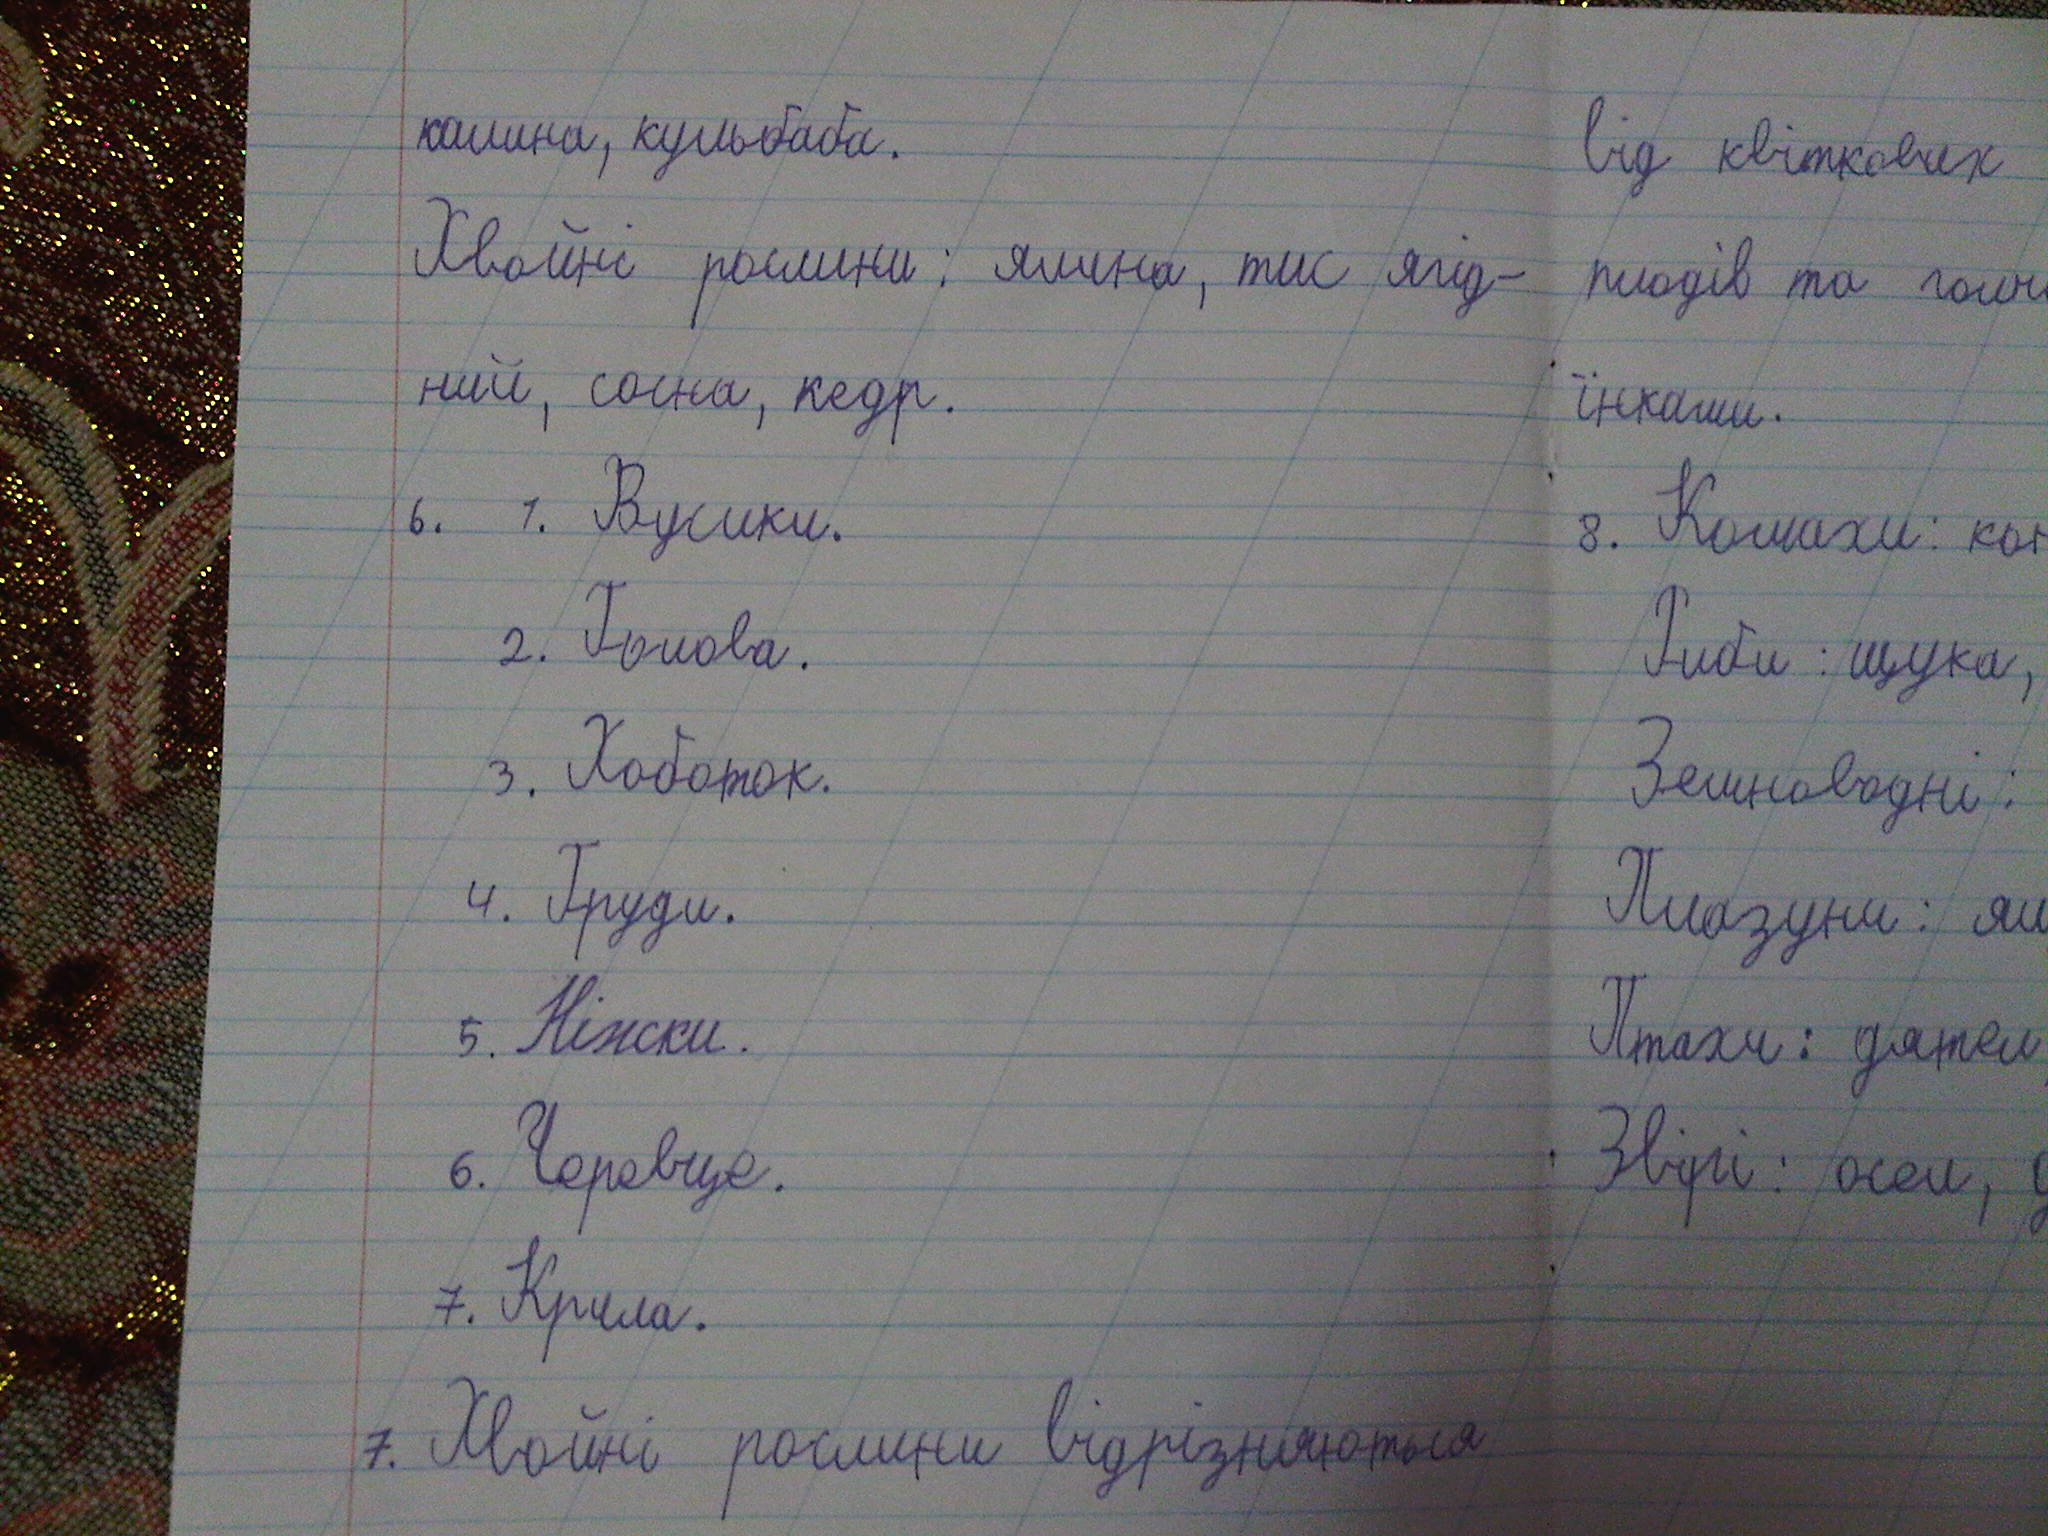 калина, кульбаба.
Хвойні рослини: ялина, тис ягід-
ний, сосна, кедр.
6. 1. Вусики.
2. Голова.
3. Хоботок.
4. Груди.
5. Ніжки.
6. Черевце.
7. Крила.
7. Хвойні рослини відрізняються
від квіткових
плодів та
їнками.
8. Комахи:
Риби: щука,
Земноводні:
Плазуни:
Птахи: дятел,
Звірі: осел,